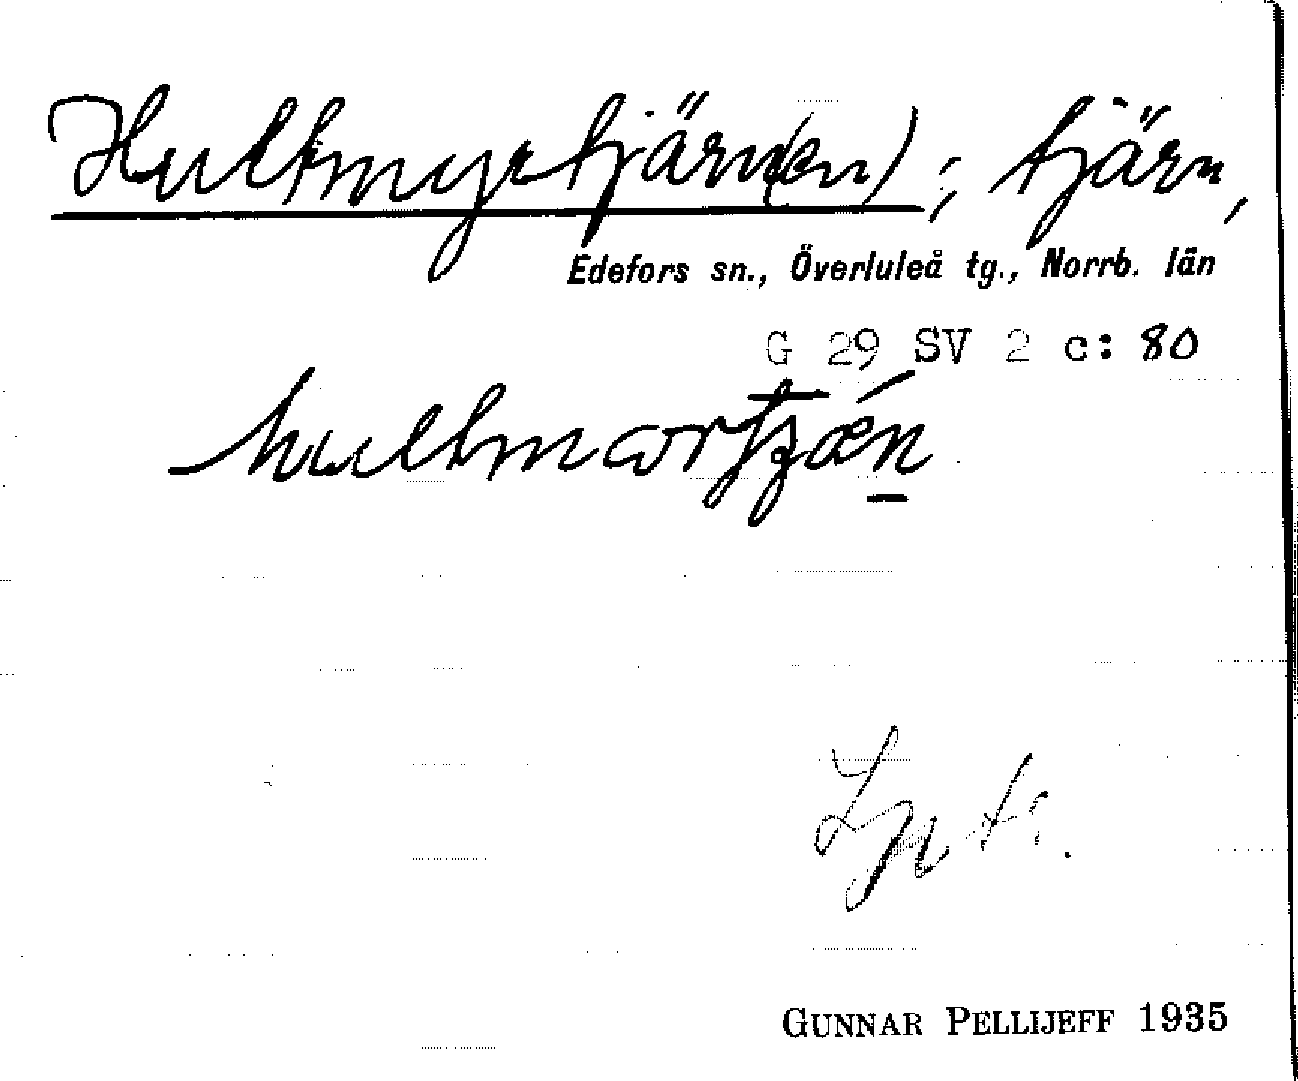 Hultmyrtjärn(en); tjärn,
Edefors sn., Överluleå tg., Norrb. län
G 29 SV 2 c: 80
GUNNAR PELLIJEFF 1935